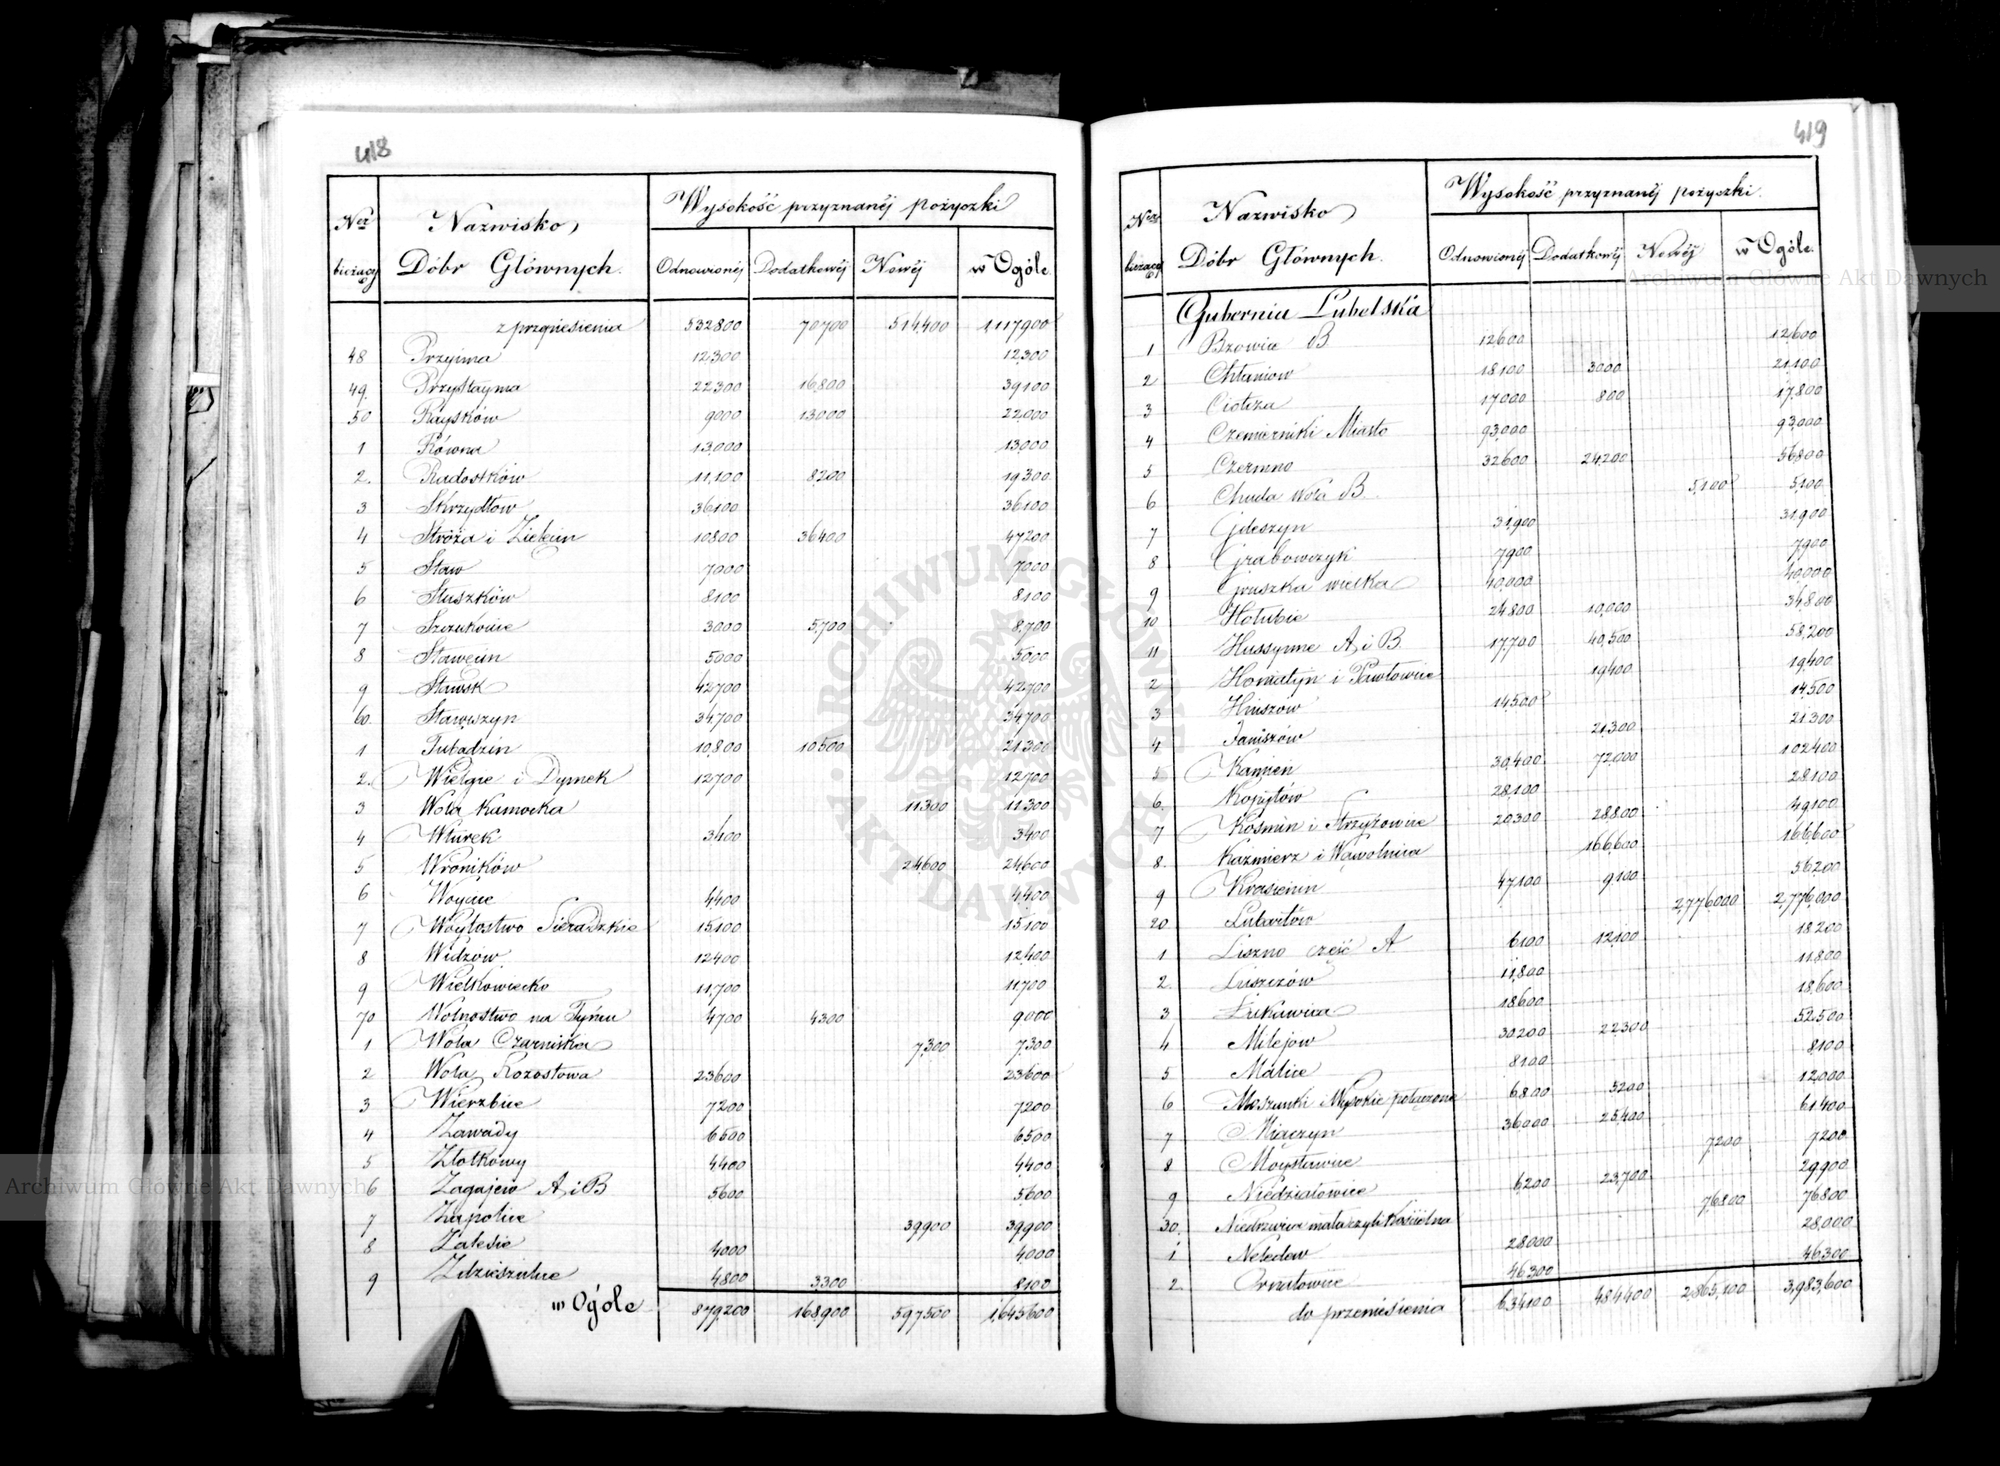 418
Nra bieżący Nazwisko Dóbr Głównych. Wysokość przyznanéj pożyczki
Odnowionéj Dodatkowéj Nowéj w Ogóle
z przeniesienia 532800 70700 514,400 1.117900
48 Przyima 12300 12300
49. Przystayma 22300 16,800 39100
50 Raysków 9000 13000 22,000
1 Równa 13,000 13,000
2. Radostków 11,100 8200 19300
3 Skrzydłow 36100 36100
4 Stróża i 10800 36400 47200
5 Staw 7000 7000
6 Słuszków 8100 8100
7 Szczukowice 3000 5,700 8,700
8 Sławęcin 5000 5000
9 Sławsk 42700 42700
60. Stawiszyn 34,700 34,700
1 Tubądzin 10,800 10500 21300
2. Wielgie i Dymek 12700 12700
3 Wola Kamocka 11300 11300
4 Wturek 3400 3400
5 Wroników 24,600 24,600
6 4,400 4,400
7 Woytostwo Sieradzkie 15100 15100
8 Widzów 12400 12,400
9 Wielkowiecko 11,700 11,700
70 Wolnostwo na Tyńcu 4700 4300 9000
1 Wola Czarniska 7,300 7,300
2 Wola Kozostowa 23600 23600
3 Wierzbie 7200 7200
4 Zawady 6500 6500
5 Złotkowy 4,400 4,400
6 Zagajew A i B 5600 5600
7 Zapolice 39,900 39,900
8 Zalesie 4000 4000
9 4800 3,300 8100
w Ogóle 879,200 168,900 597,500 1,645,600
419
Nra bieżący Nazwisko Dóbr Głównych. Wysokość przyznanéj pożyczki.
Odnowionéj Dodatkowéj Nowéj w Ogóle.
Gubernia Lubelska
1 Bzowiec B 12600 12,600
2 Chłaniow 18100 3000 21,100
3 Ciotcza 17000 800 17,800
4 Czemierniki Miasto 93,000 93,000
5 Czermno 32600 24,200 56,800
6 Chuda Wola B 5,100 5,100
7 Gdeszyn 31,900 31,900
8 Grabowczyk 7900 7900
9 Gruszka wielka 40,000 40,000
10 Hołubie 24,800 10,000 34,800
11 Hussynne A i B. 17,700 40,500 58,200
2 Honiatyn i Pawłowice 19400 19,400
3 Hniszow 14,500 14,500
4 Janiszów 21,300 21.300
5 Kamień 30,400 72,000 102400
6. Kopyłów 28,100 28.100
7 Kosmin i Strzyżowice 20300 28,800 49,100
8. Kazmierz i Wąwolnica 166,600 166,600
9 Krasienin 47,100 9,100 56,200
20. Lubartów 2,776,000 2,776,000
1 Liszno część A 6100 12,100 18.200
2. Luszczów 11,800 11.800
3 Łukawica 18600 18,600
4 Milejow 30200 22300 52,500
5 Malice 8100 8,100
6 Moszunki i Wysokie połączone 6,800 5200 12,000
7 Miączyn 36,000 25,400 61,400
8 Moysławice 7200 7200
9 Niedziałowice 6,200 23,700 29,900
30. Niedrzwica mała czyli Kościelna 76,800 76,800
1 Neledew 28000 28,000
2. Ornatowice 46,300 46,300
do przeniesienia 634,100 484,400 2,865,100 3,983,600
ARCHIWUM GŁÓWNE
AKT DAWNYCH
Archiwum Główne Akt Dawnych
Archiwum Główne Akt Dawnych